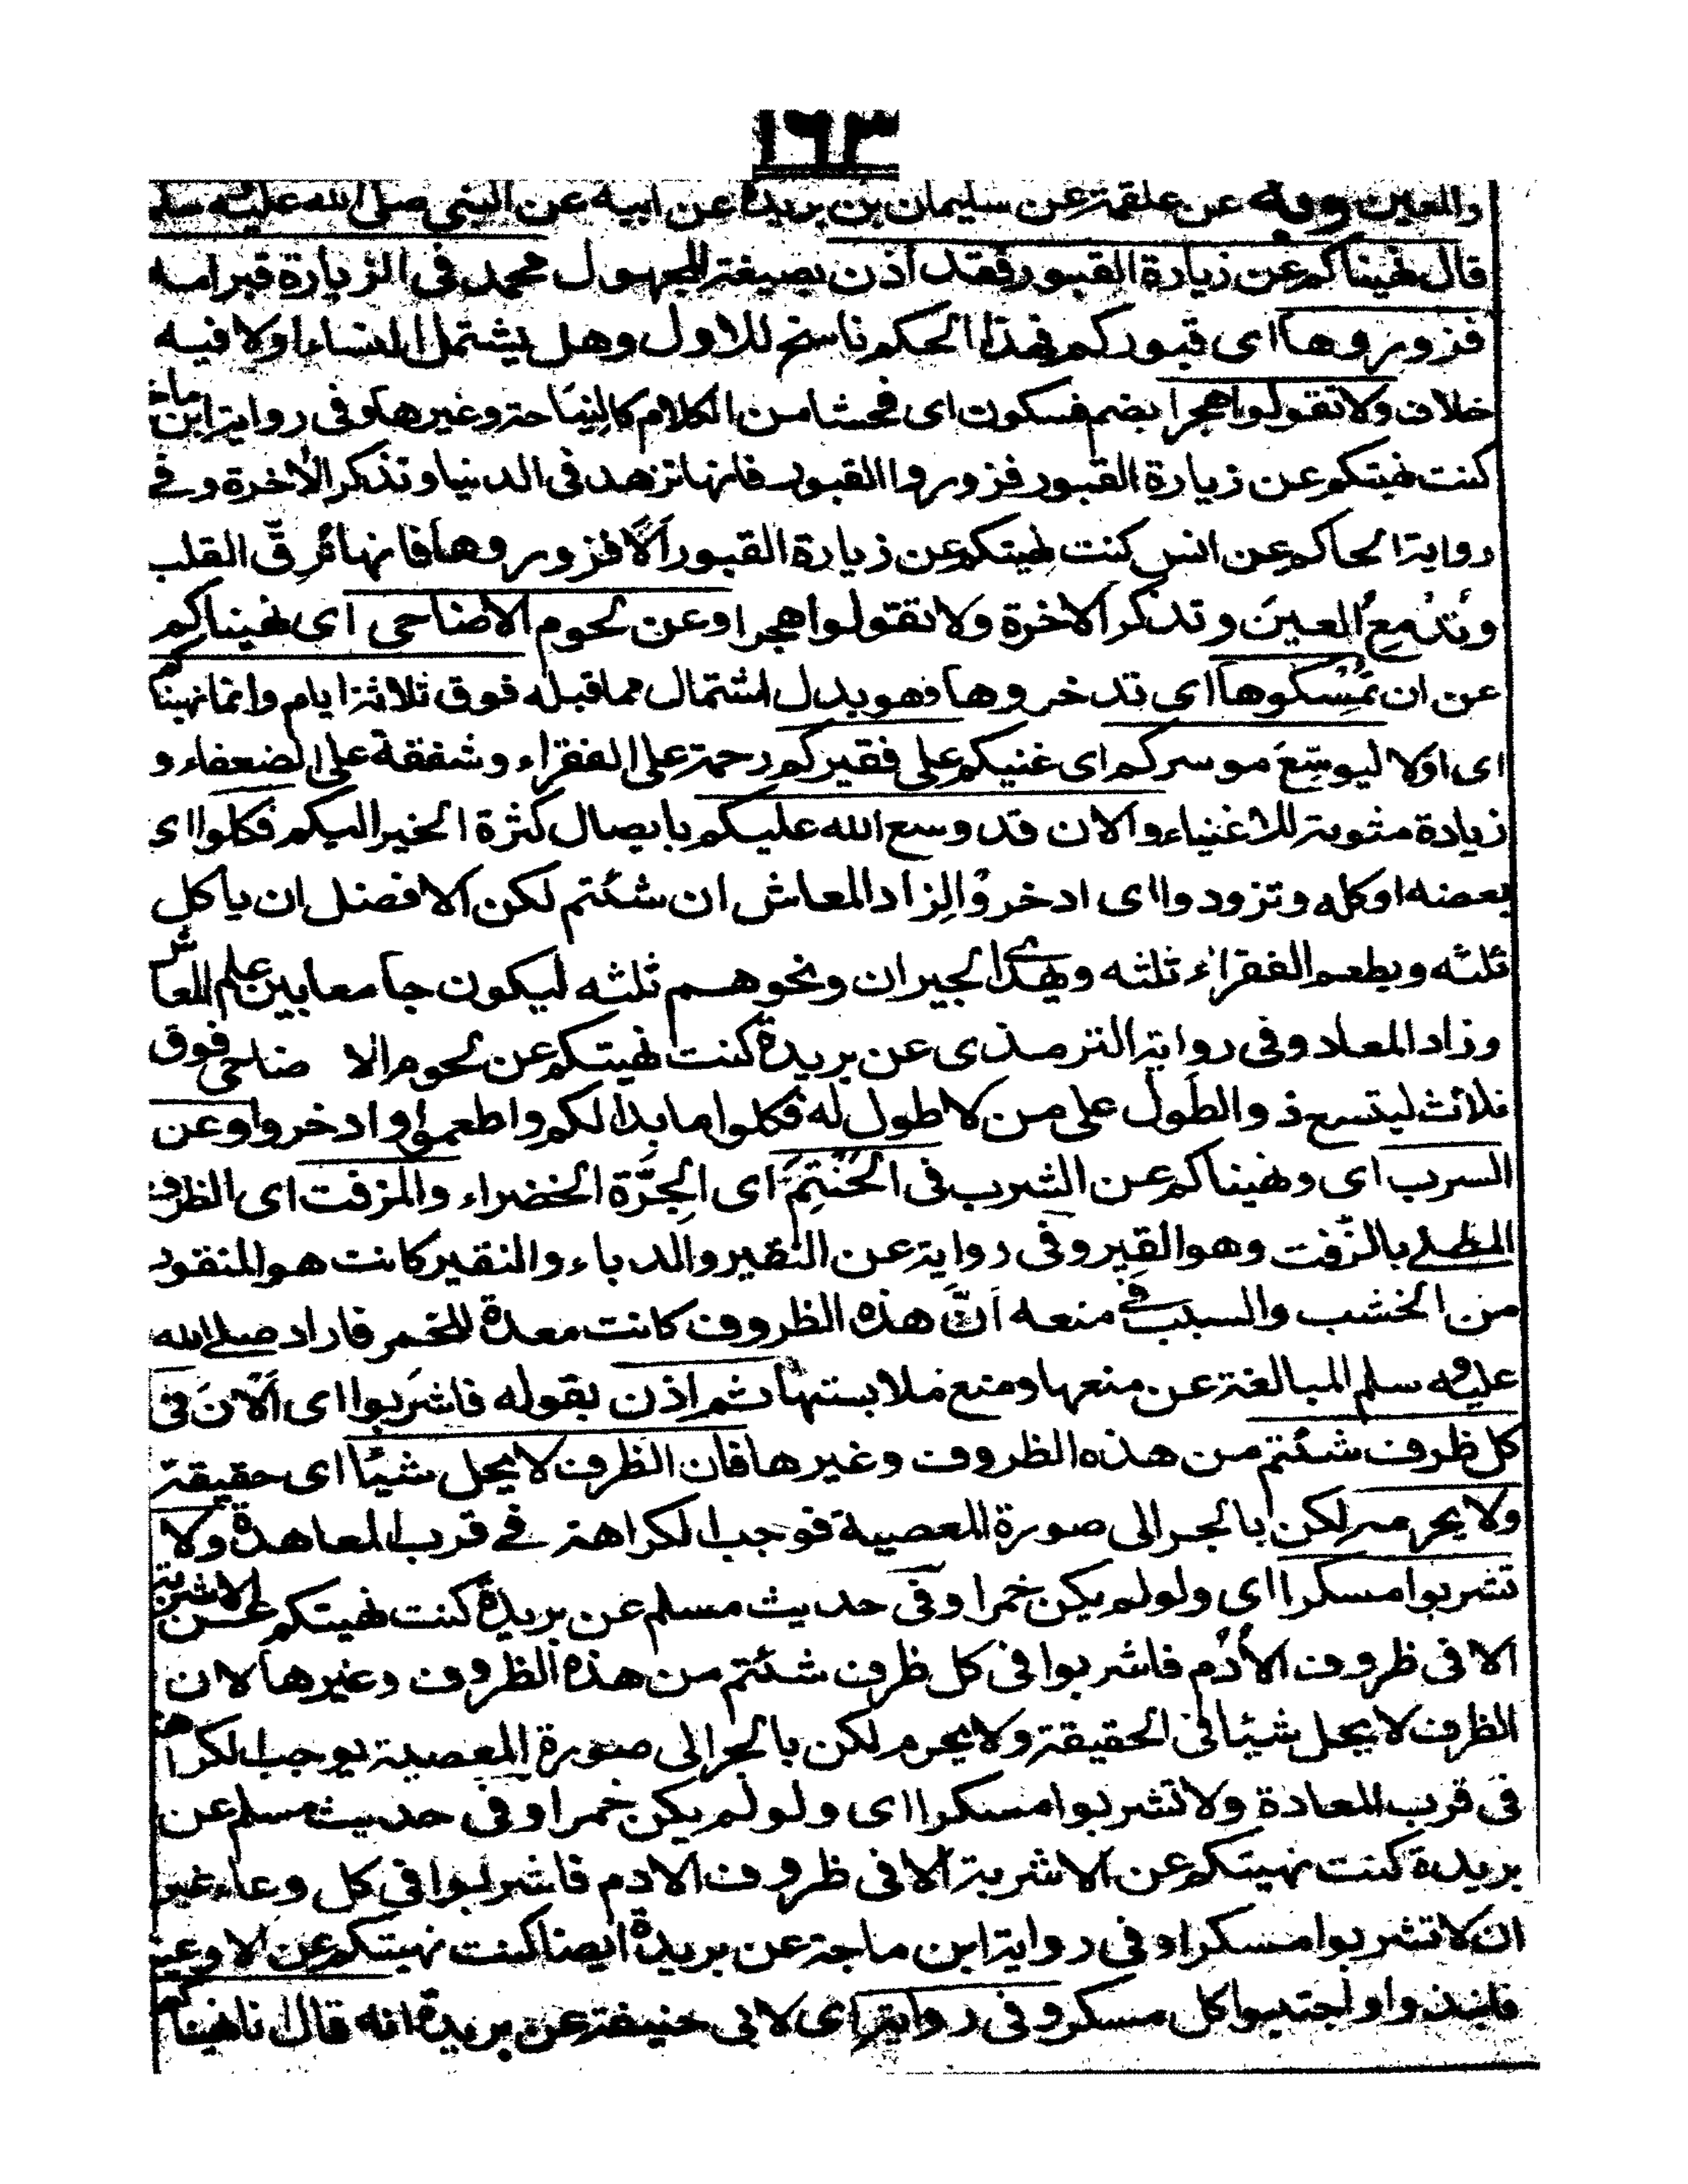 ١٦٣
والمعين وبه عن علقمة عن سليمان بن بريدة عن ابيه عن النبى صلى الله عليه وسلم
قال نهيناكم عن زيارة القبور فقد اذن بصيغة المجهول لمحمد فى الزيارة قبر امه
فزوروها اى قبوركم فهذا الحكم ناسخ للاول وهل يشتمل النساء او لا فيه
خلاف ولا تقولوا هجرا بضم فسكون اى فحشا من الكلام كالنياحة وغيرها وفى رواية ابن ماجة
كنت نهيتكم عن زيارة القبور فزوروا القبور فانها تزهد فى الدنيا وتذكر الاخرة وفے
رواية الحاكم عن انس كنت نهيتكم عن زيارة القبور اَلَا فزوروها فانها تُرِقّ القلب
وتُدْمِعُ العينَ وتذكر الاخرة ولا تقولوا هجرا وعن لحوم الاضاحى اى نهيناكم
عن ان تُمْسِكوها اى تدخروها فهو بدل اشتمال مما قبله فوق ثلاثة ايام وانما نهيناكم
اى اولا ليوسّعَ موسركم اى غنيكم على فقيركم رحمة على الفقراء وشفقة على الضعفاء و
زيادة مثوبة للاغنياء والان قد وسع الله عليكم بايصال كثرة الخير اليكم فكلوا اى
بعضه او كله وتزودوا اى ادخروا لزاد المعاش ان شئتم لكن الافضل ان ياكل
ثلثه ويطعم الفقراء ثلثه ويهدى الجيران ونحوهم ثلثه ليكون جامعا بين علم المعاش
وزاد المعاد وفى رواية الترمذى عن بريدة كنت نهيتكم عن لحوم الا ضاحى فوق
ثلاث ليتسع ذو الطَول على من لا طول له فكلوا ما بدا لكم واطعموا وادخروا وعن
السرب اى ونهيناكم عن الشرب فى الحَنْتَمِ اى الجِرَّة الخضراء والمزفت اى الظرف
المطلے بالزفت وهو القير وفى رواية عن النقير والدباء والنقير كانت هو المنقور
من الخشب والسبب فے منعه اَنَّ هذه الظروف كانت معدة للخمر فاراد صلے الله
عليه وسلم المبالغة عن منعها ومنع ملابستها ثم اذن بقوله فاشربوا اى اَلْانَ فى
كل ظرف شئتم من هذه الظروف وغيرها فان الظرف لا يحل شيئا اى حقيقة
ولا يحرمه لكن بالجر الى صورة المعصية فوجب الكراهة فے قرب المعاهدة ولا
تشربوا مسكرا اى ولو لم يكن خمرا وفى حديث مسلم عن بريدة كنت نهيتكم عن الاشربة
الا فى ظروف الأدم فاشربوا فى كل ظرف شئتم من هذه الظروف وغيرها لان
الظرف لا يحل شيئا فى الحقيقة ولا يحرم لكن بالجر الى صورة المعصية يوجب الكراهة
فى قرب المعادة ولا تشربوا مسكرا اى ولو لم يكن خمرا وفى حديث مسلم عن
بريدة كنت نهيتكم عن الاشربة الا فى ظروف الادم فاشربوا فى كل وعاء غير
ان لا تشربوا مسكرا وفى رواية ابن ماجة عن بريدة ايضا كنت نهيتكم عن الاوعية
فانبذوا واجتنبوا كل مسكر وفى رواية اى لابى حنيفة عن بريدة انه قال نا نهيناكم